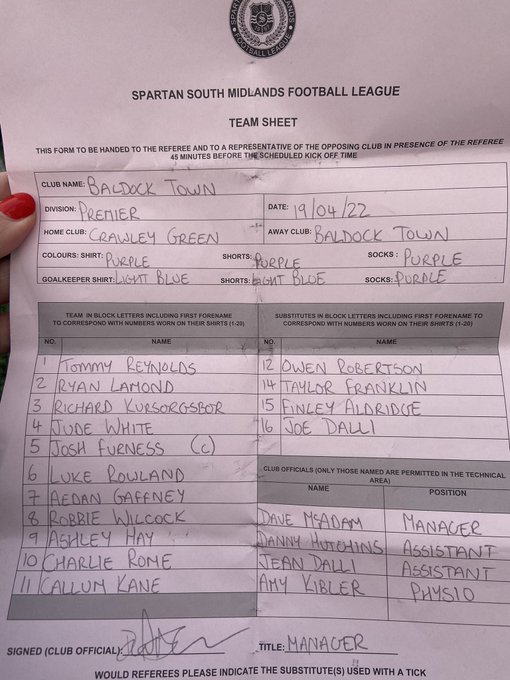 SPARTAN SOUTH MIDLANDS
FOOTBALL LEAGUE
SPARTAN SOUTH MIDLANDS FOOTBALL LEAGUE
TEAM SHEET
THIS FORM TO BE HANDED TO THE REFEREE AND TO A REPRESENTATIVE OF THE OPPOSING CLUB IN PRESENCE OF THE REFEREE
45 MINUTES BEFORE THE SCHEDULED KICK OFF TIME
CLUB NAME: BALDOCK TOWN
DIVISION: PREMIER DATE: 19/04/22
HOME CLUB: CRAWLEY GREEN AWAY CLUB: BALDOCK TOWN
COLOURS: SHIRT: PURPLE SHORTS: PURPLE SOCKS: PURPLE
GOALKEEPER SHIRT: LIGHT BLUE SHORTS: LIGHT BLUE SOCKS: PURPLE
TEAM IN BLOCK LETTERS INCLUDING FIRST FORENAME
TO CORRESPOND WITH NUMBERS WORN ON THEIR SHIRTS (1-20)
NO. NAME
1 TOMMY REYNOLDS
2 RYAN LAMOND
3 RICHARD KURSORGSBOR
4 JUDE WHITE
5 JOSH FURNESS (C)
6 LUKE ROWLAND
7 AEDAN GAFFNEY
8 ROBBIE WILCOCK
9 ASHLEY HAY
10 CHARLIE ROME
11 CALLUM KANE
SUBSTITUTES IN BLOCK LETTERS INCLUDING FIRST FORENAME TO
CORRESPOND WITH NUMBERS WORN ON THEIR SHIRTS (1-20)
NO. NAME
12 OWEN ROBERTSON
14 TAYLOR FRANKLIN
15 FINLEY ALDRIDGE
16 JOE DALLI
CLUB OFFICIALS (ONLY THOSE NAMED ARE PERMITTED IN THE TECHNICAL
AREA)
NAME POSITION
DAVE McADAM MANAGER
DANNY HUTCHINS ASSISTANT
JEAN DALLI ASSISTANT
AMY KIBLER PHYSIO
SIGNED (CLUB OFFICIAL): TITLE: MANAGER
WOULD REFEREES PLEASE INDICATE THE SUBSTITUTE(S) USED WITH A TICK